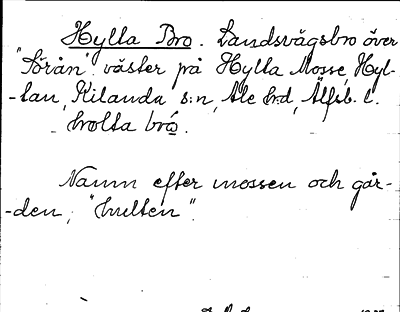 Hylla Bro. Landsvägsbro över
"Sörån" väster på Hylla Mosse, Hyl-
-lan, Kilanda s:n, Ale hd, Älfsb. l.
hvolta brå.
Namn efter mossen och går-
-den, "hulten".